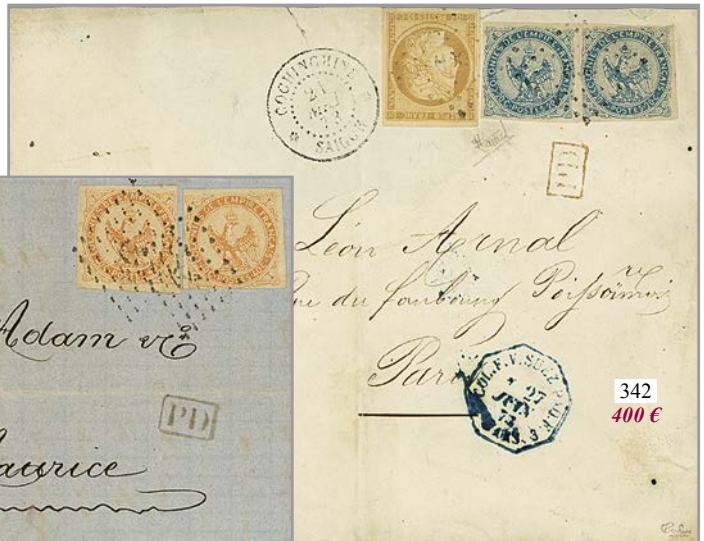 COCHINCHINE
21
MAI
73
SAIGON
COLONIES DE L'EMPIRE FRANÇAIS
COLONIES DE L'EMPIRE FRANÇAIS
PD
Léon Arnal
Rue du faubourg Poissonnière
Paris
COL. F. V. SUEZ PAQ. F.
27
JUIN
73
342
400 €
COLONIES DE L'EMPIRE FRANÇAIS
Adam & Cº
PD
aurice